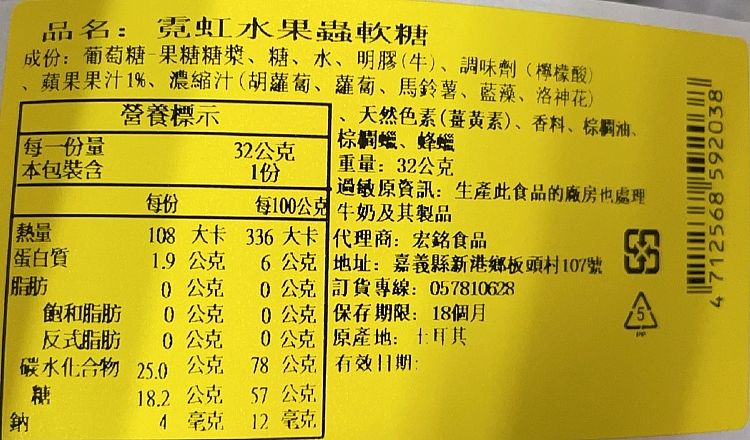 品名：霓虹水果蟲軟糖
成份：葡萄糖-果糖糖漿、糖、水、明膠(牛)、調味劑（檸檬酸)
、蘋果果汁1%、濃縮汁(胡蘿蔔、蘿蔔、馬鈴薯、藍藻、洛神花)
、天然色素(薑黃素)、香料、棕櫚油、
棕櫚蠟、蜂蠟
重量：32公克
過敏原資訊：生產此食品的廠房也處理
牛奶及其製品
代理商：宏銘食品
地址：嘉義縣新港鄉板頭村107號
訂貨專線：057810628
保存期限：18個月
原產地：土耳其
有效日期:
營養標示
每一份量 32公克
本包裝含 1份
每份 每100公克
熱量 108 大卡 336 大卡
蛋白質 1.9 公克 6 公克
脂肪 0 公克 0 公克
飽和脂肪 0 公克 0 公克
反式脂肪 0 公克 0 公克
碳水化合物 25.0 公克 78 公克
糖 18.2 公克 57 公克
鈉 4 毫克 12 毫克
4 712568 592038
5
PP